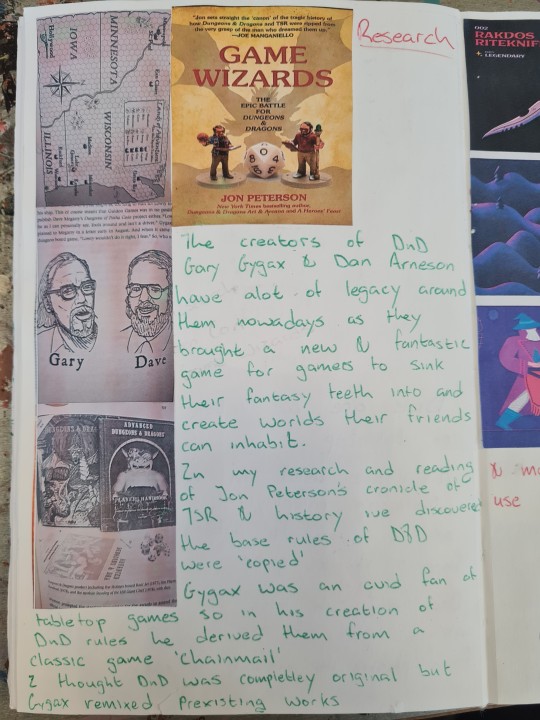 Research
"Jon sets straight the 'canon' of the tragic history of
how Dungeons & Dragons and TSR were ripped from
the very grasp of the men who dreamed them up."
—JOE MANGANIELLO
GAME
WIZARDS
THE
EPIC BATTLE
FOR
DUNGEONS
&
DRAGONS
JON PETERSON
New York Times bestselling author,
Dungeons & Dragons Art & Arcana and A Heroes' Feast
MINNESOTA
IOWA
WISCONSIN
ILLINOIS
Gary
Dave
ADVANCED
DUNGEONS & DRAGONS
The creators of DnD
Gary Gygax & Dan Arneson
have alot of legacy around
them nowadays as they
brought a new & fantastic
game for gamers to sink
their fantasy teeth into and
create worlds their friends
can inhabit.
In my research and reading
of Jon Peterson's cronicle of
TSR & history ive discovered
the base rules of D&D
were 'copied'
Gygax was an avid fan of
tabletop games so in his creation of
DnD rules he derived them from a
classic game 'Chainmail'
I thought DnD was completley original but
Gygax remixed prexisting works
002
RAKDOS
RITEKNIF
LEGENDARY
& mo
use